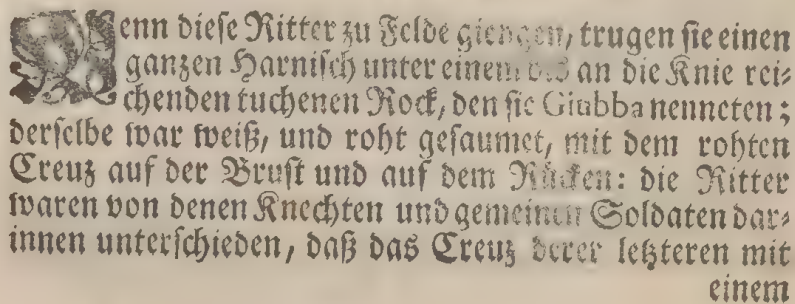 Wenn diese Ritter zu Felde giengen, trugen sie einen
ganzen Harnisch unter einem bis an die Knie rei⸗
chenden tuchenen Rock, den sie Giubba nenneten;
derselbe war weiß, und roht gesaumet, mit dem rohten
Creuz auf der Brust und auf dem Rücken: die Ritter
waren von denen Knechten und gemeinen Soldaten dar⸗
innen unterschieden, daß das Creuz derer letzteren mit
einem